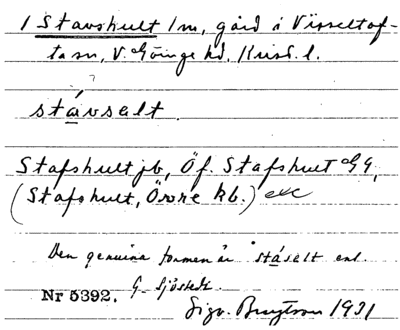 1 Stavshult 1 m, gård i Visseltof-
ta sn, V. Göinge hd, Krist. l.
stávsalt
Stafshult jb, Öf. Stafshult GG,
(Stafshult, Öore kb.) etc
Den genuina formen är stáselt enl.
G. Sjöstedt.
Nr 5392.
Sigv. 1931